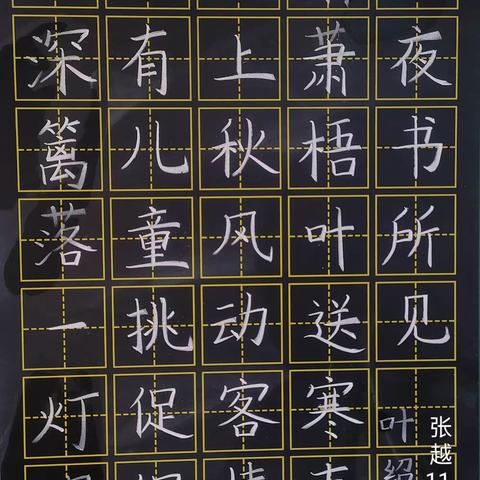 夜书所见
叶绍
张越11
萧梧叶送寒
上秋风动客
有儿童挑促
深篱落一灯